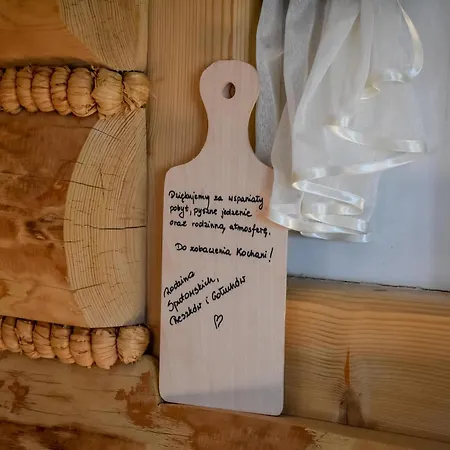 Dziękujemy za wspaniały
pobyt, pyszne jedzenie
oraz rodzinną atmosferę,
Do zobaczenia Kochani!
Rodzina
Spotowskich,
i Gołuchów
♡